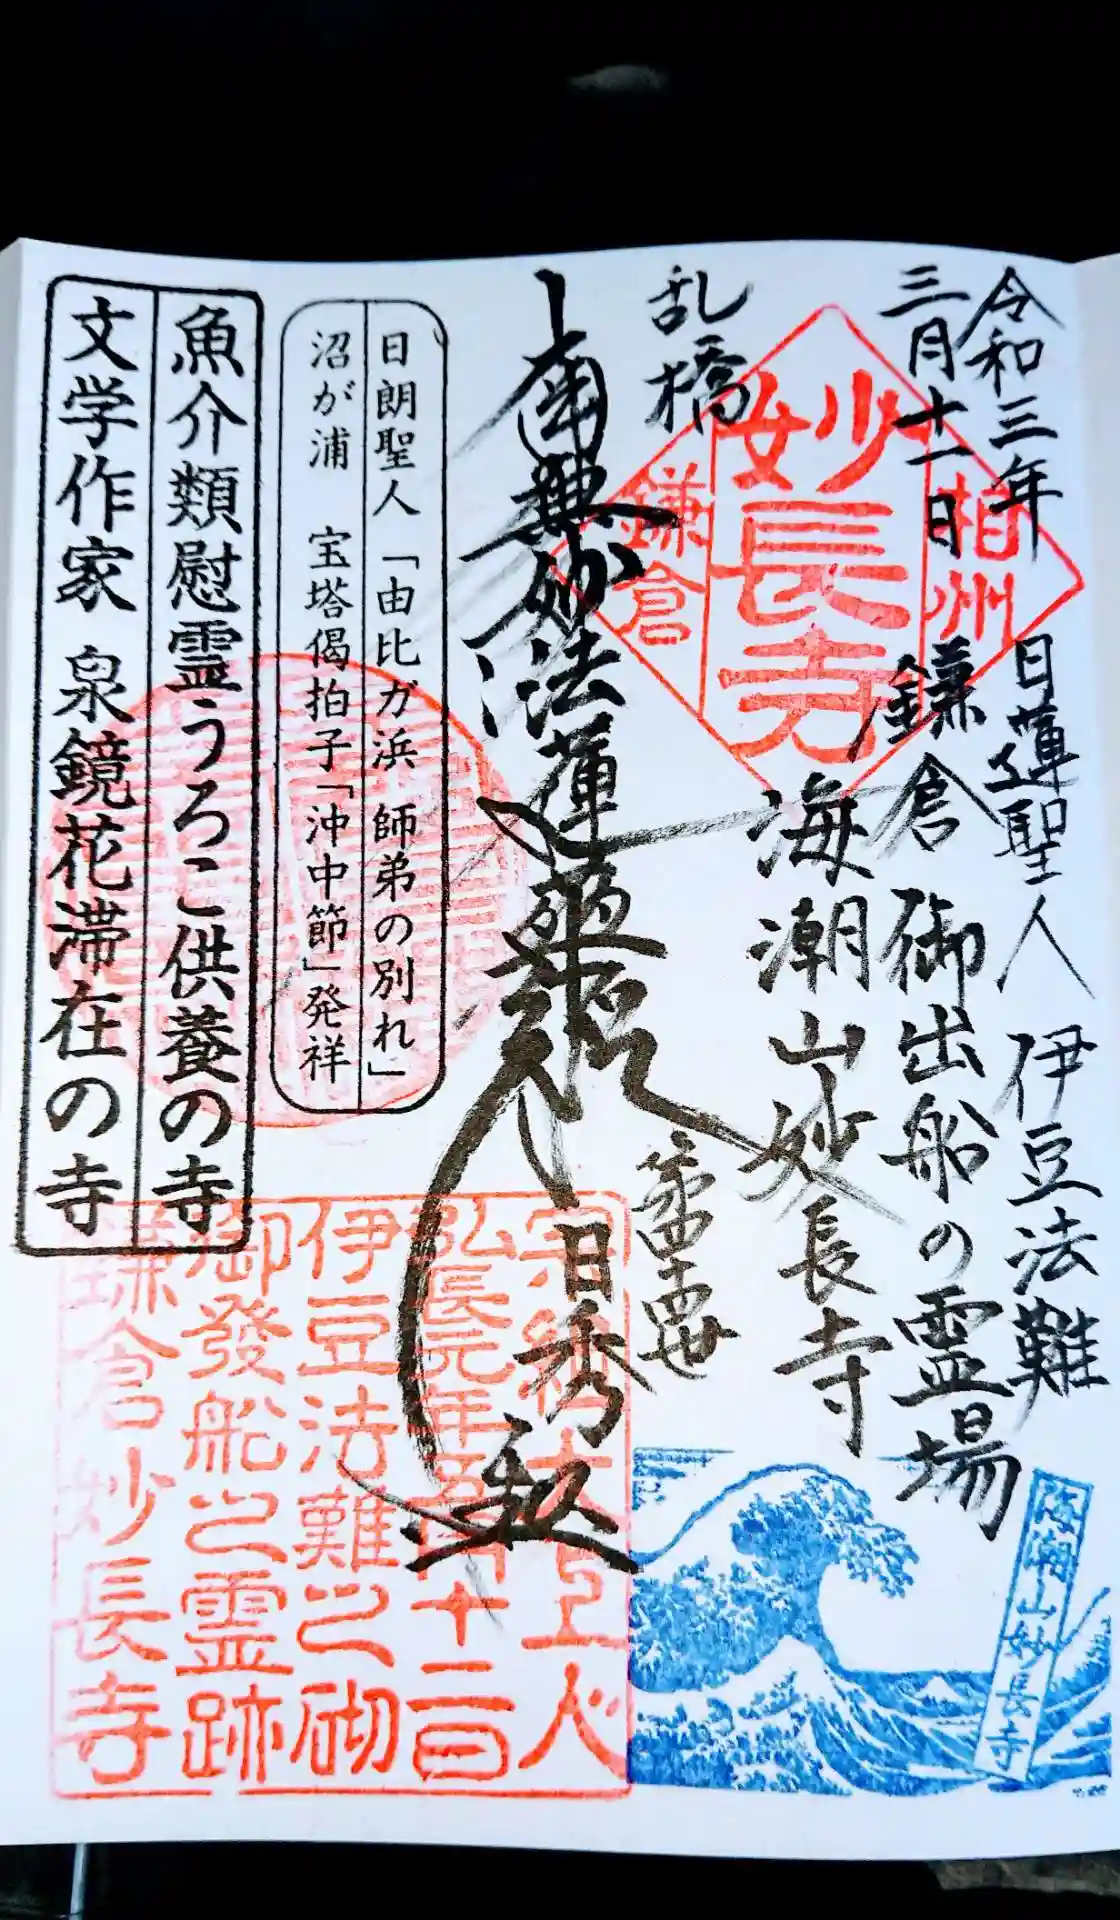 令和三年
三月十一日
日蓮聖人 伊豆法難
鎌倉 御出船の霊場
海潮山妙長寺
相州
妙長寺
鎌倉
乱橋
南無妙法蓮華経
第四十四世
日秀
日朗聖人「由比ガ浜 師弟の別れ」
沼が浦 宝塔偈拍子「沖中節」発祥
魚介類慰霊うろこ供養の寺
文学作家 泉鏡花滞在の寺
宗祖大上人
弘長元年五月十二日
伊豆法難之砌
御發船之霊跡
鎌倉妙長寺
海潮山妙長寺